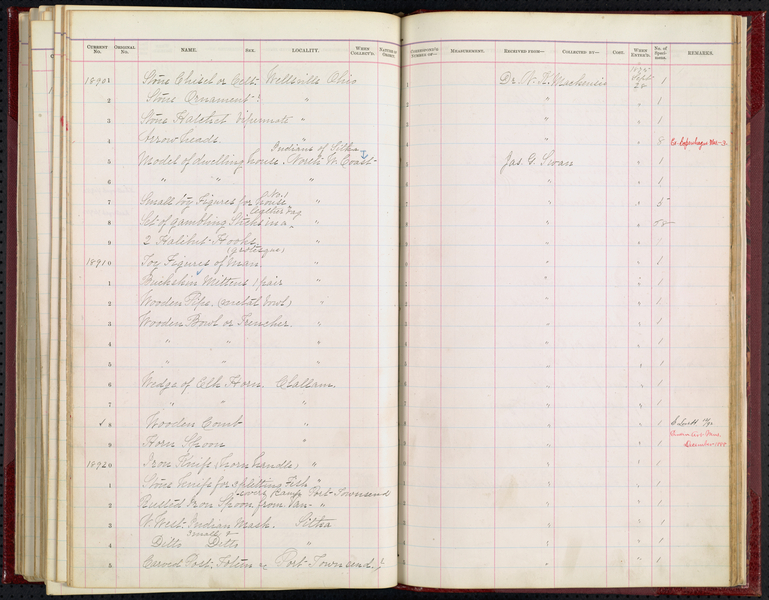 CURRENT No. ORIGINAL No. NAME. SEX. LOCALITY. WHEN COLLECT'D. NATURE OF OBJECT. MEASUREMENT. RECEIVED FROM— COLLECTED BY— COST. WHEN ENTER'D. No. of Speci-mens. REMARKS.
18901 Stone Chisel or Celt. Wellsville Ohio 1 Dr. W. 1875 Sept 28 1
2 Stone Ornament. " 2 " " 1
3 Stone Hatchet " 3 " " 1
4 Arrowheads. " 4 " " 8 Ex Copenhagen Mus-3.
Indians of Sitka
5 Model of dwelling house. North W. Coast 5 Jas. G. Swan " 1
6 " " " " 6 " " 1
7 Small toy Figures for house " 7 " " 5
together bag
8 Set of gambling Sticks in a " 8 " "
9 2 Halibut Hooks " 9 " "
(grotesque)
18910 Toy Figures of Man. " 0 " " 1
1 Buckskin Mittens 1 pair " 1 " " 1
2 Wooden Pipe. (metal bowl) " 2 " " 1
3 Wooden Bowl or Trencher. " 3 " " 1
4 " " " 4 " " 1
5 " " " 5 " " 1
6 Wedge of Elk Horn. Clallam. 6 " " 1
7 " " " 7 " " 1
8 Wooden Comb " 8 " " 1
9 Horn Spoon " 9 " " 1 December 1885
18920 Iron Knife (horn handle) " 0 " " 1
1 Stone knife for splitting Fish " 1 " " 1
Port Townsend
2 Iron Spoon from Van- " 2 " " 1
3 N. West Indian Mask. Sitka 3 " " 1
small
4 Ditto Ditto " 4 " " 1
5 Carved Post. Totem Port Townsend. 5 " " 1